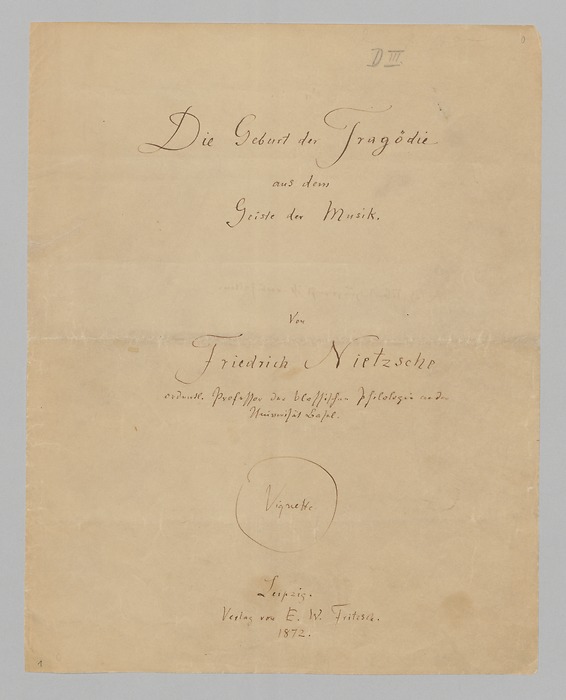 D III.
Die Geburt der Tragödie
aus dem
Geiste der Musik.
Von
Friedrich Nietzsche
ordentl. Professor der classischen Philologie an der
Universität Basel.
Vignette
Leipzig.
Verlag von E. W. Fritzsch.
1872.
1